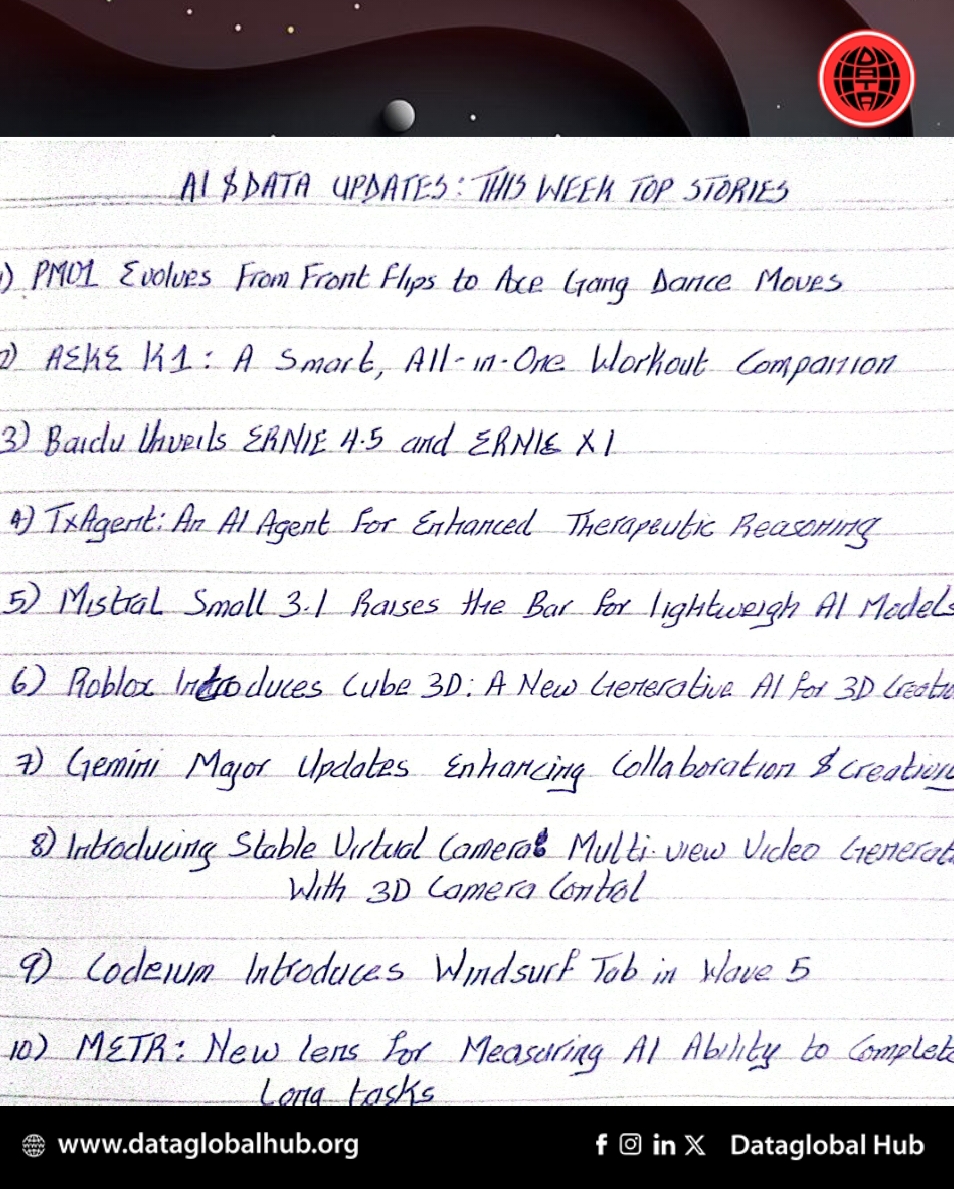 DATA
AI & DATA UPDATES: THIS WEEK TOP STORIES
1) PM01 Evolves From Front Flips to Axe Gang Dance Moves
2) AEKE K1: A Smart, All-in-One Workout Companion
3) Baidu Unveils ERNIE 4.5 and ERNIE X1
4) TxAgent: An AI Agent For Enhanced Therapeutic Reasoning
5) Mistral Small 3.1 Raises the Bar for lightweigh AI Models
6) Roblox Introduces Cube 3D: A New Generative AI for 3D Creatio
7) Gemini Major Updates Enhancing Collaboration & Creativity
8) Introducing Stable Virtual Camera: Multi-view Video Generat
With 3D Camera Control
9) Codeium Introduces Windsurf Tab in Wave 5
10) METR: New lens for Measuring AI Ability to Complete
Long tasks
www.dataglobalhub.org
f in X Dataglobal Hub